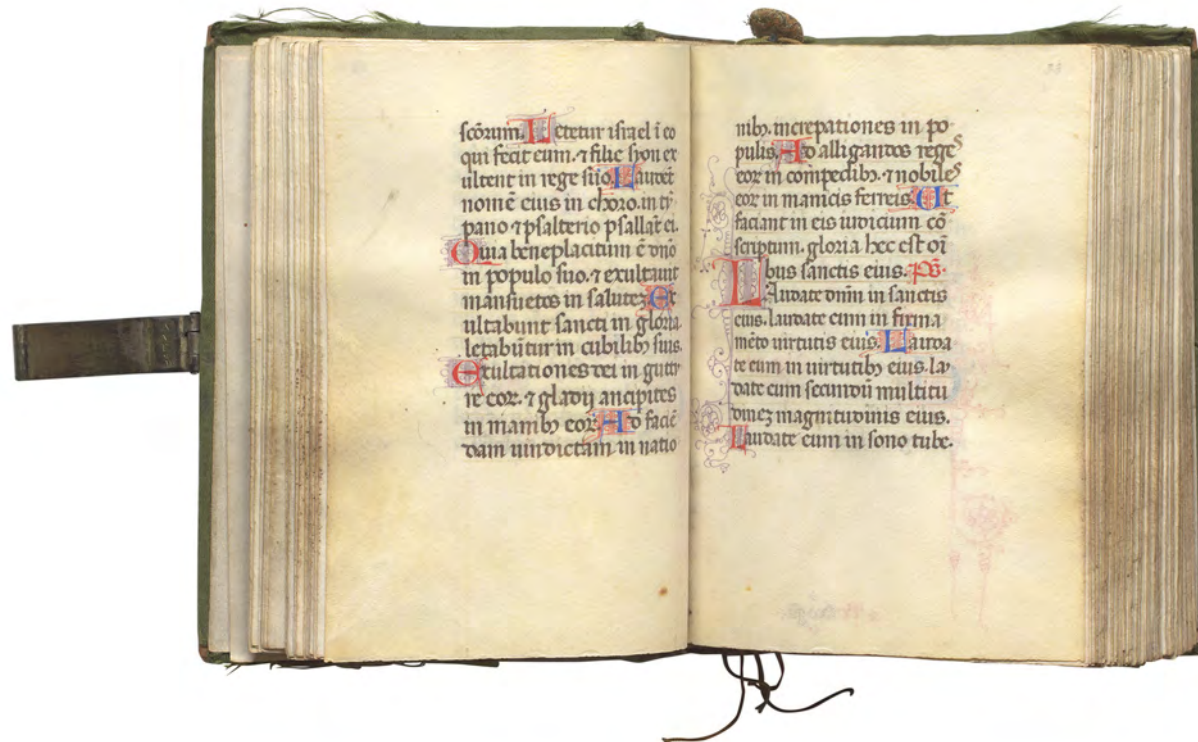 scōrum. Letetur israel ī eo
qui fecit eum. ⁊ filie syon ex
ultent in rege suo. Laudēt
nomē eius in choro. in tȳ
pano ⁊ psalterio psallāt ei.
Quia beneplacitum ē dn̄o
in populo suo. ⁊ exultauit
mansuetos in salutez. Ex
ultabunt sancti in gloria.
letabūtur in cubilibꝫ suis.
Exultationes dei in guttu
re eoꝝ. ⁊ gladij ancipites
in manibꝫ eoꝝ. Ad faciē
dam uindictam in natio
38
nibꝫ. increpationes in po
pulis. Ad alligandos reges
eoꝝ in compedibꝫ. ⁊ nobiles
eoꝝ in manicis ferreis. Ut
faciant in eis iudicium cō
scriptum. gloria hec est oī
bus sanctis eius. Pꝰ.
Laudate dn̄m in sanctis
eius. laudate eum in firma
mēto uirtutis eius. Lauda
te eum in uirtutibꝫ eius. lau
date eum secundū multitu
dinez magnitudinis eius.
Laudate eum in sono tube.